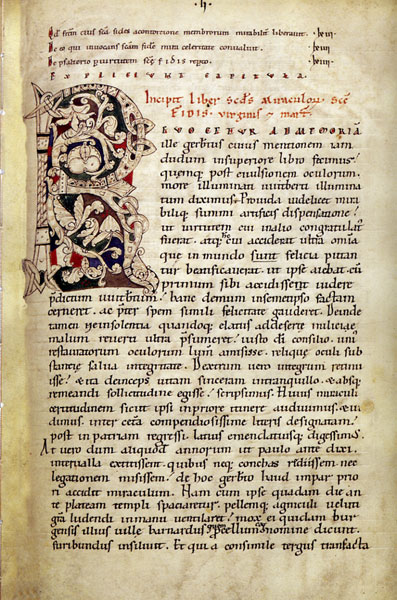 De eo qui invocans scām fidē mira celeritate convaluit.
De psalterio p virtutem scę FIDIS repto.
EXPLICIUNT CAPITULA.
Incipit liber scds miraculorū scē
FIDIS. virginis & mart̄
REVOCETUR AD MEMORIĀ
ille gerbtus cuius mentionem iam
dudum insuperiore libro fecimus.
quemq; post evulsionem oculorum
more illuminati witberti illumina
tum diximus. Provida videlicet mira
bilique summi artificis dispensatione.
ut virtutem cui inalio congratulat'
fuerat. acciderat ultra omia
que in mundo sunt felicia putan
tur beatificaverat. ut ipse aiebat cū
primum sibi accidisset videre
pdictum witbtum. hanc demum insemetipso factam
cerneret. ac pter spem simili felicitate gauderet. Deinde
tamen neinsolentia quandoq; elatus addeserte milicie
malum reverti ultra psumeret. iusto di consilio. uni'
restauratorum oculorum lumē amisisse. relique oculi sub
stantie salva integritate. Dextrum vero integrum retinu
isse. & ita deinceps vitam sinceram intranquillo. & absq;
remeandi sollicitudine egisse. scripsimus. Huius miraculi
certitudinem sicut ipsi inpriore itinere audivimus. & vi
dimus. inter cetā compendiosissime literis designatam.
post in patriam regressi. latius emendatiusq; digessim'.
At vero dum aliquod annorum ut paulo ante dixi.
intervalla extitissent. quibus neq; conchas redissem neq;
legationem misissem. de hoc gerbto haud impar prio
ri accidit miraculum. Nam cum ipse quadam die an
te plateam templi spaciaretur. pellemq; agniculi veluti
gra ludendi inmanu ventilaret. mox ei quidam bur
gensis illius ville barnardus nomine dicunt.
furibundus insiluit. Et quia consimile tergus